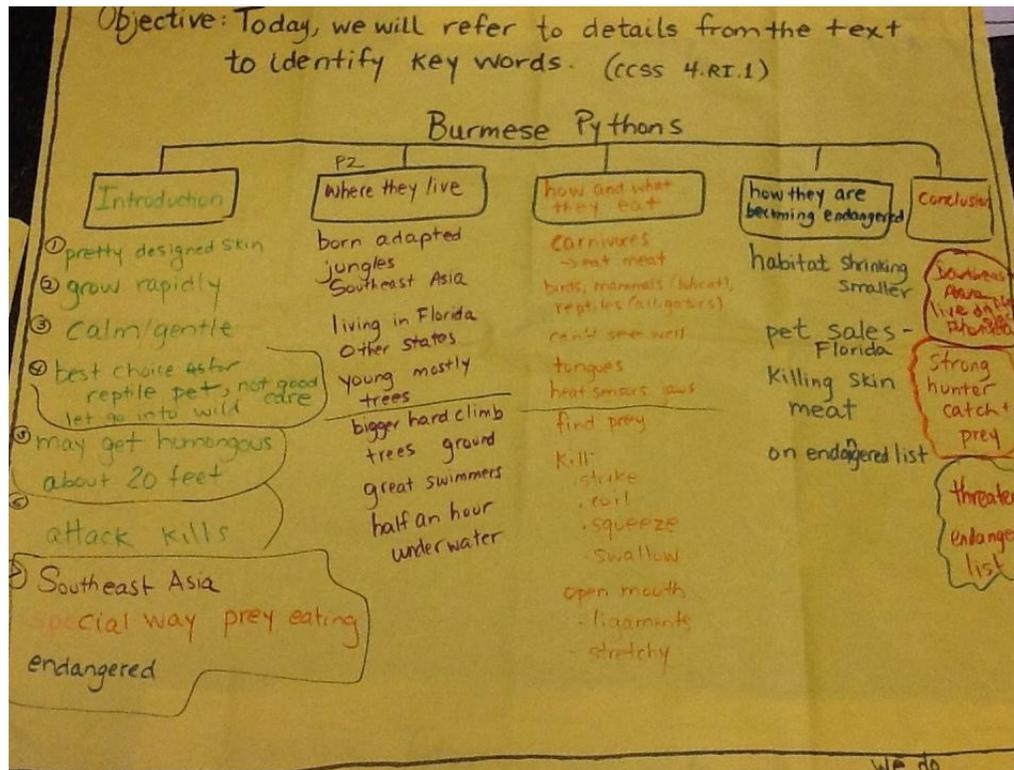 Objective: Today, we will refer to details from the text
to identify key words. (CCSS 4.RI.1)
Burmese Pythons
Introduction
① pretty designed skin
② grow rapidly
③ calm/gentle
④ best choice as for
reptile pet, not good
care
let go into wild
⑤ may get humongous
about 20 feet
⑥
attack kills
Southeast Asia
special way prey eating
endangered
P2
where they live
born adapted
jungles
Southeast Asia
living in Florida
Other states
young mostly
trees
bigger hard climb
trees ground
great swimmers
half an hour
underwater
how and what
they eat
carnivores
→ eat meat
birds, mammals (bobcat),
reptiles (alligators)
can't see well
tongues
heat sensors jaws
find prey
kill
. strike
. coil
. squeeze
. swallow
open mouth
- ligaments
- stretchy
how they are
becoming endangered
habitat shrinking
smaller
pet sales -
Florida
Killing skin
meat
on endangered list
Conclusion
Southeast
live
Strong
hunter
catch +
prey
threaten
endange
list
we do